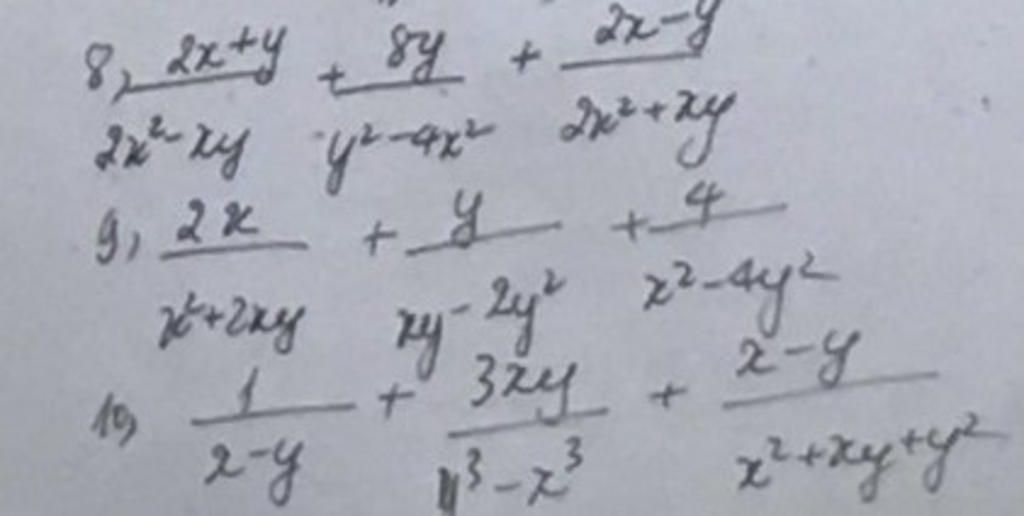 8, \frac{2x+y}{2x^2-xy} + \frac{8y}{y^2-4x^2} + \frac{2x-y}{2x^2+xy}
9, \frac{2x}{x^2+2xy} + \frac{y}{xy-2y^2} + \frac{4}{x^2-4y^2}
10, \frac{1}{x-y} + \frac{3xy}{y^3-x^3} + \frac{x-y}{x^2+xy+y^2}